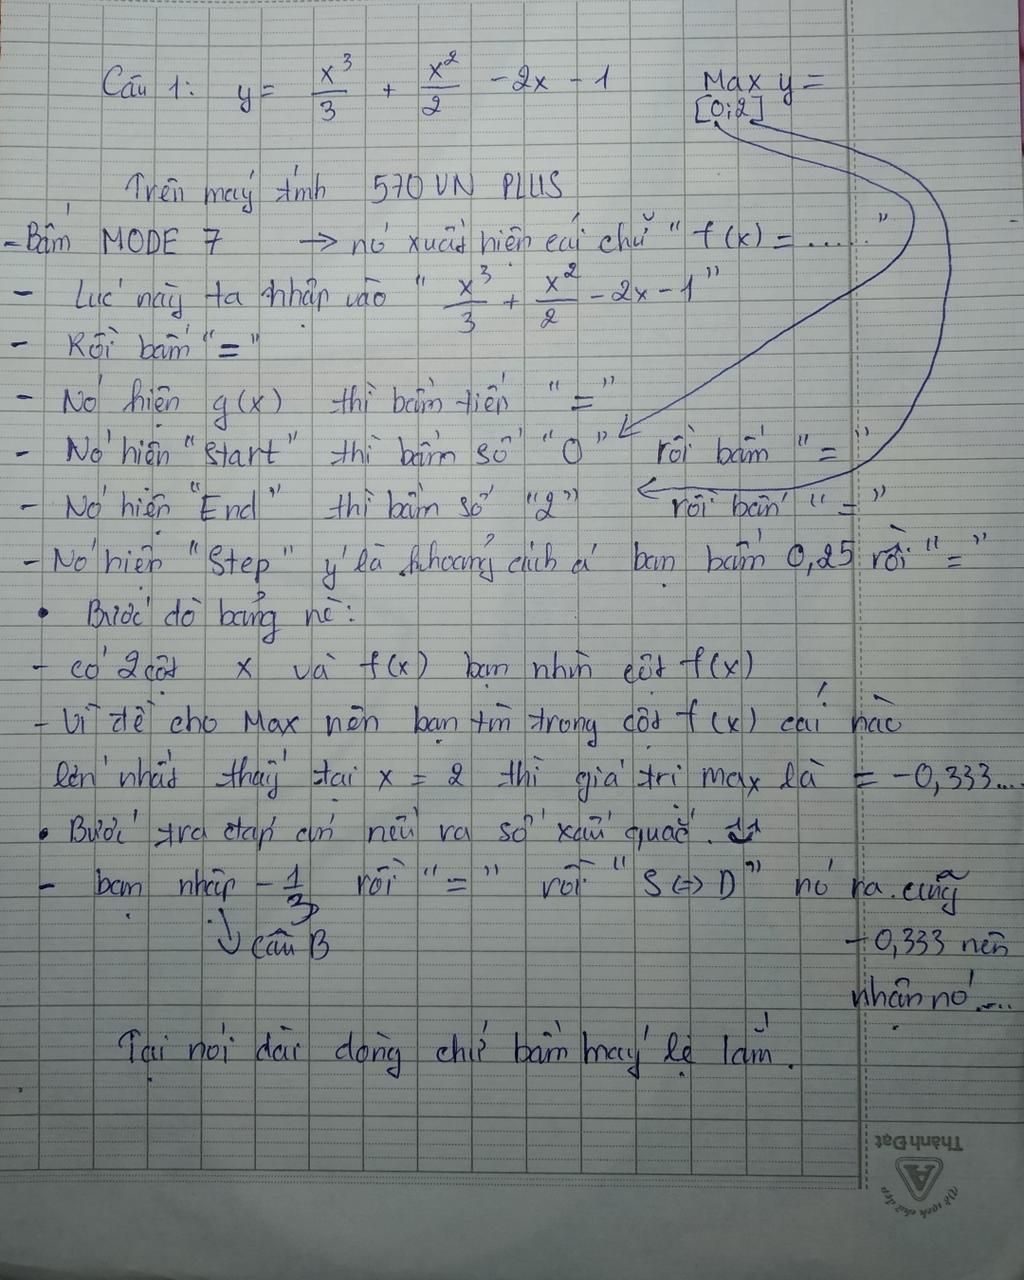 Câu 1: y = x³/3 + x²/2 - 2x - 1 Max y =
[0;2]
Trên máy tính 570 VN PLUS
- Bấm MODE 7 → nó xuất hiện cái chữ " f(x) = ...... "
- Lúc này ta nhập vào " x³/3 + x²/2 - 2x - 1 "
- Rồi bấm " = "
- Nó hiện g(x) thì bấm tiếp " = "
- Nó hiện "Start" thì bấm số "0" rồi bấm " = "
- Nó hiện "End" thì bấm số "2" rồi bấm " = "
- Nó hiện "Step" ý là khoảng cách á bạn bấm 0,25 rồi " = "
• Bước dò bảng nè:
- có 2 cột x và f(x) bạn nhìn cột f(x)
- Vì đề cho Max nên bạn tìm trong cột f(x) cái nào
lớn nhất thấy tại x = 2 thì giá trị max là = -0,333...
• Bước tra đáp án nếu ra số xấu quắc.
- bạn nhập - 1/3 rồi " = " rồi " S⇔D " nó ra cũng
↓ câu B
- 0,333 nên
nhận nó ....
Tại nói dài dòng chứ bấm máy lẹ lắm.
Thành Đạt